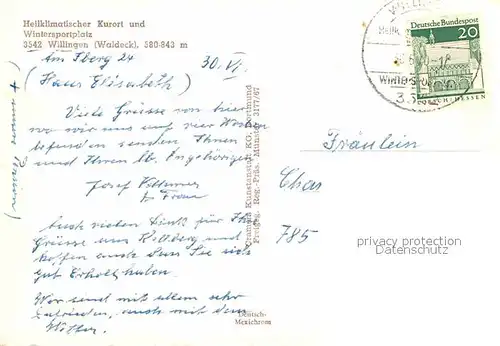 Heilklimatischer Kurort und
Wintersportplatz
3542 Willingen (Waldeck), 580-843 m
Am Iberg 24
30. VI.
(Haus Elisabeth)
Viele Grüsse von hier
wo wir uns auf vier Wochen
befinden senden Ihnen
und Ihren lb. Angehörigen
Josef
u. Frau
Auch vielen Dank für Ihre
Grüsse und
hoffen auch Sie sich
gut erholt haben.
Wir sind mit allem sehr
zufrieden, auch mit dem
Wetter.
Cramers Kunstanstalt KG, Dortmund
Freigeg. Reg.-Präs. Münster 3177/67
Deutsch-
Mexichrom
Deutsche Bundespost
20
HESSEN
Fräulein
Chas
785
privacy protection
Datenschutz